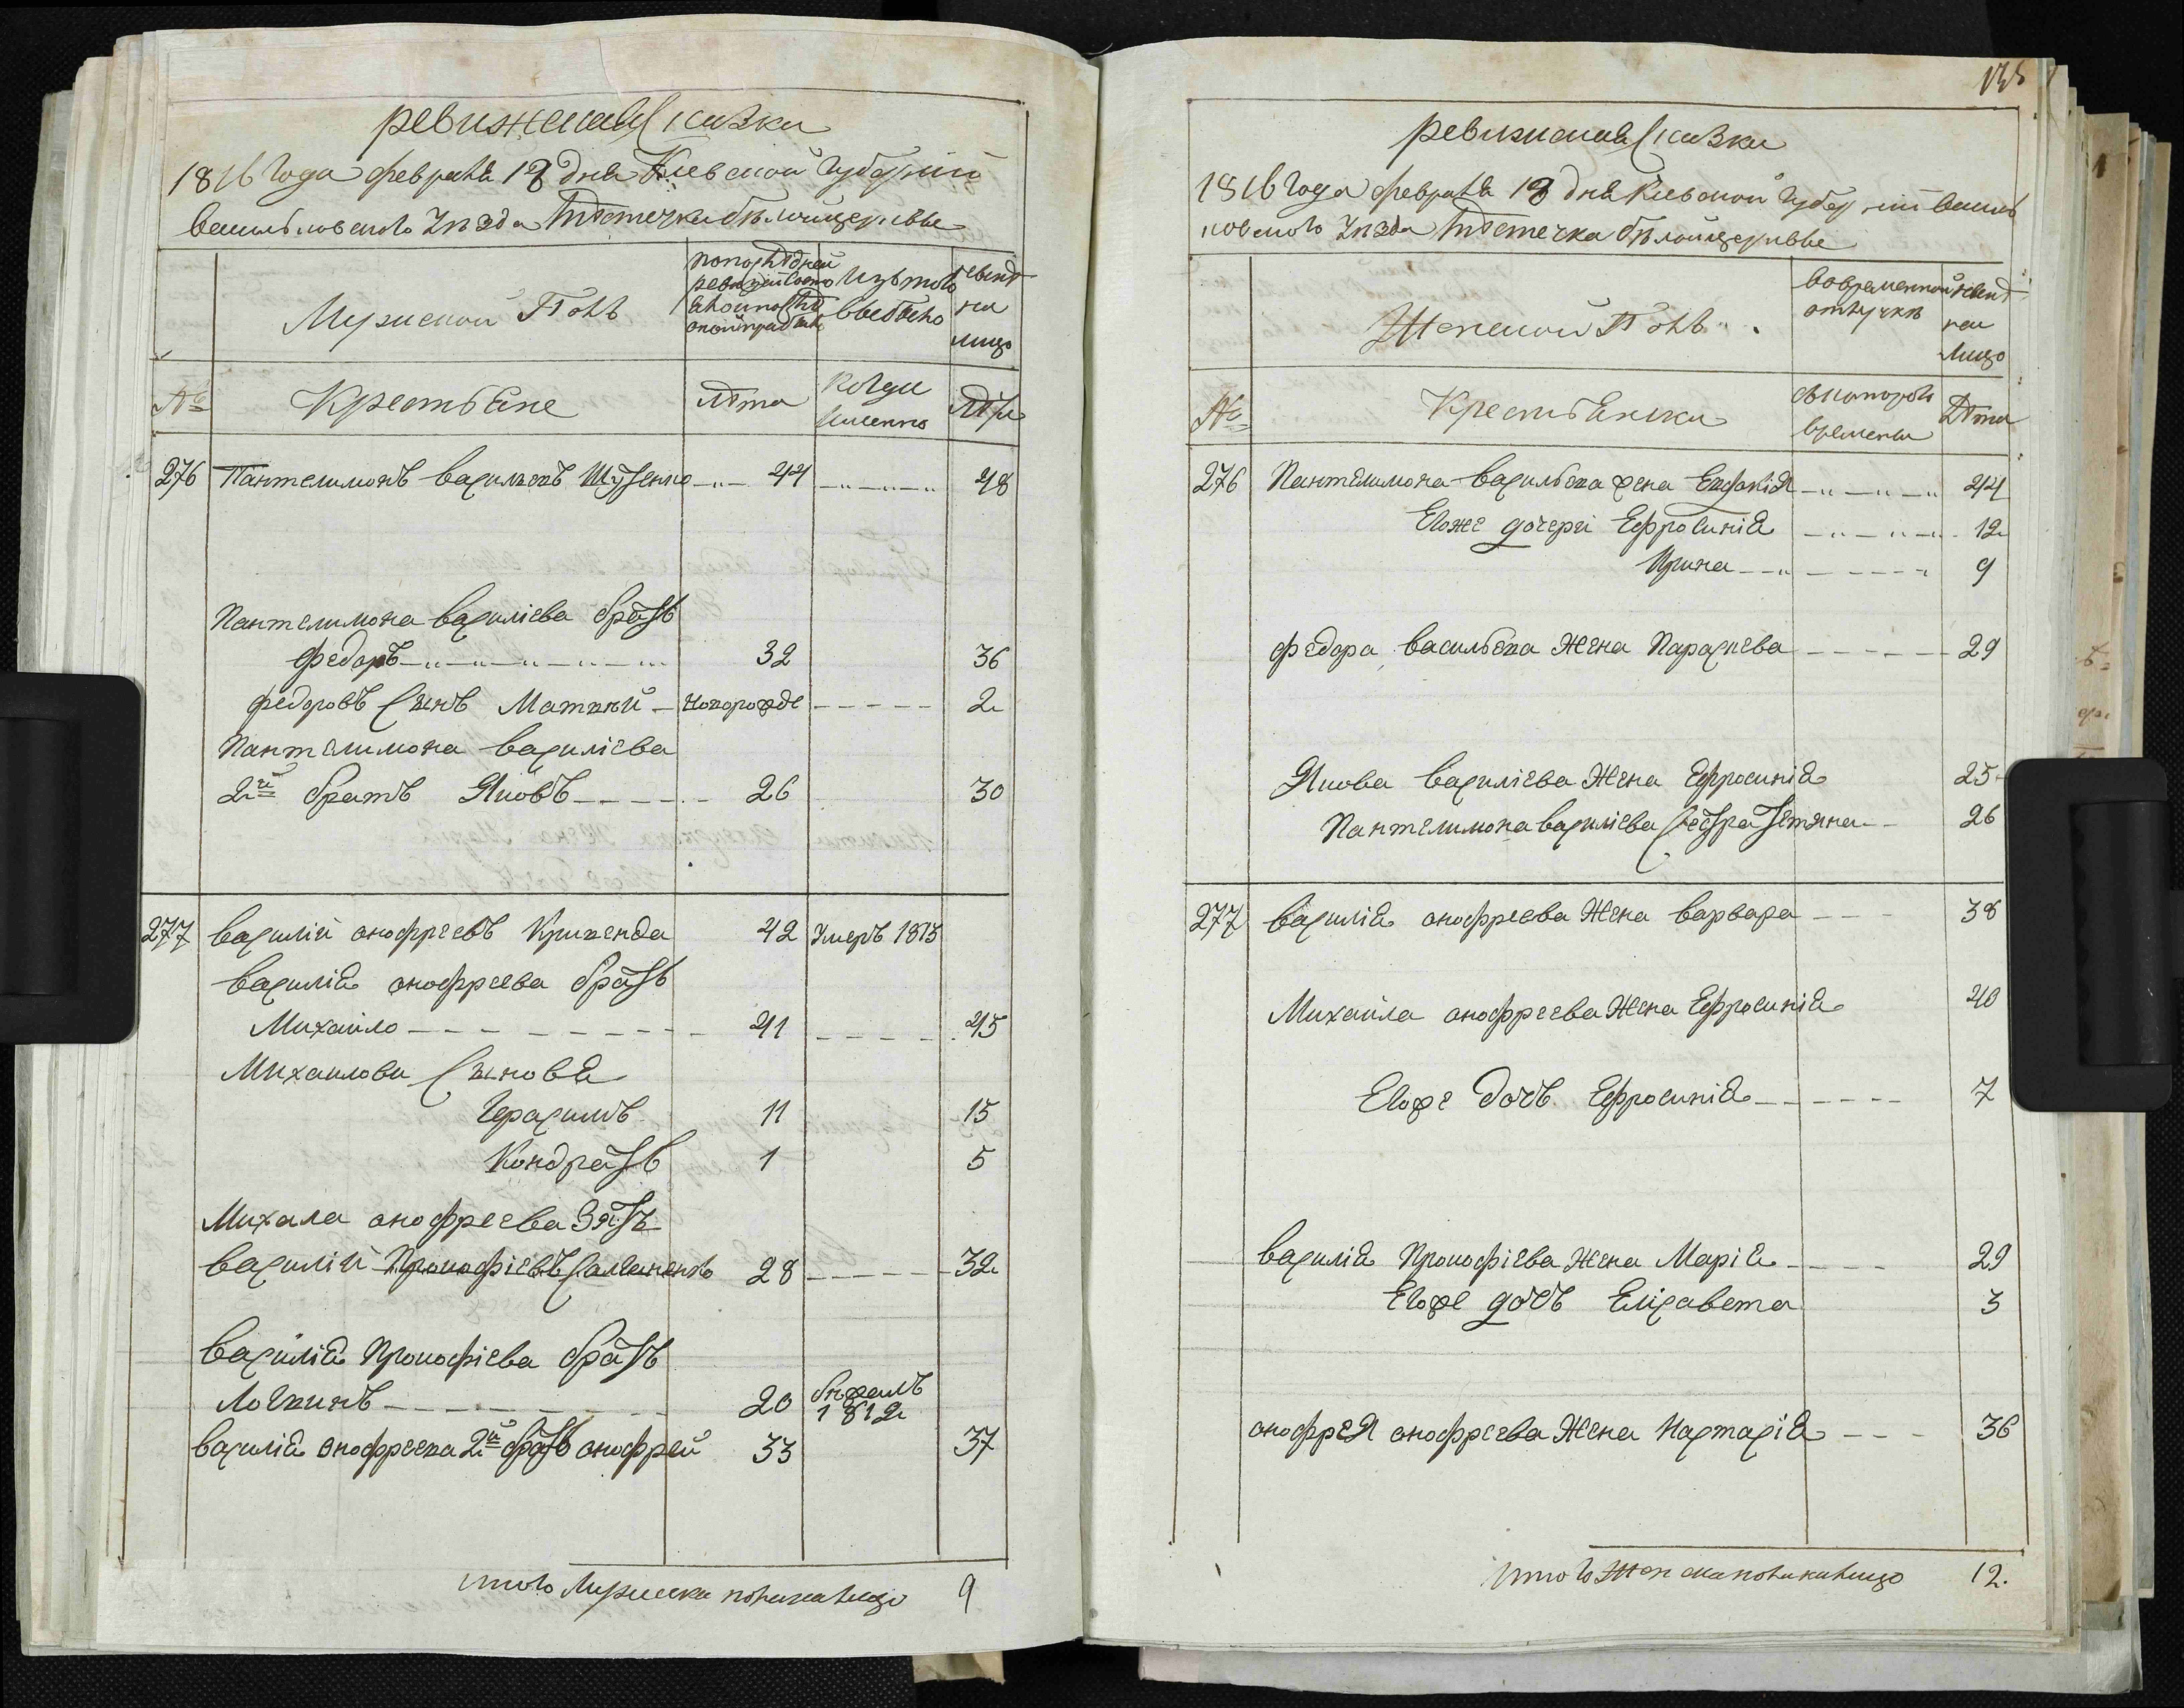 ревижская сказки
1816 Года февраля 18 дня Киевской губерніи
васильковского Уезда Местечка белойцеркве
Мужеской Полъ
попоследней ревизіи состояло и после оной прибыло
Изъ того выбыло
ныне на лицо
№
Крестьяне
Лета
когда именно
Лета
276 Пантелимонъ василіевъ 44 48
Пантелимона василіева братъ
федоръ 32 36
федоровъ сынъ Матвей новорожде 2
Пантелимона василіева
2й братъ Яковъ 26 30
277 василій онофреевъ 42 Умеръ 1813
василія онофреева братъ
Михайло 41 45
Михайлови сыновя
Герасимъ 11 15
Кондратъ 1 5
Михала онофреева Зять
василій Прокофіевъ 28 32
василія Прокофіева братъ
Логвинъ 20 бежалъ 1812
василія онофреева 2й братъ онофрей 33 37
итого Мужеска пола на лицо 9
135
ревижская сказки
1816 Года февраля 18 дня Киевской губерніи василь
ковского Уезда Местечка белойцеркве
Женской Полъ
вовременной отлучке
ныне на лицо
№
Крестьянки
съ котораго времены
Лета
276 Пантелимона васильева жена Евдокія 44
Егоже дочери Ефросинія 12
Ирина 9
федора васильева Жена Параскева 29
Якова василіева Жена Ефросинія 25
Пантелимона василіева сестра Тетяна 26
277 василія онофреева Жена варвара 38
Михайла онофреева Жена Ефросинія 40
Егоже дочъ Ефросинія 7
василія Прокофіева Жена Марія 29
Егоже дочъ Елісавета 3
онофрея онофреева Жена Настасія 36
итого Женска пола на лицо 12.